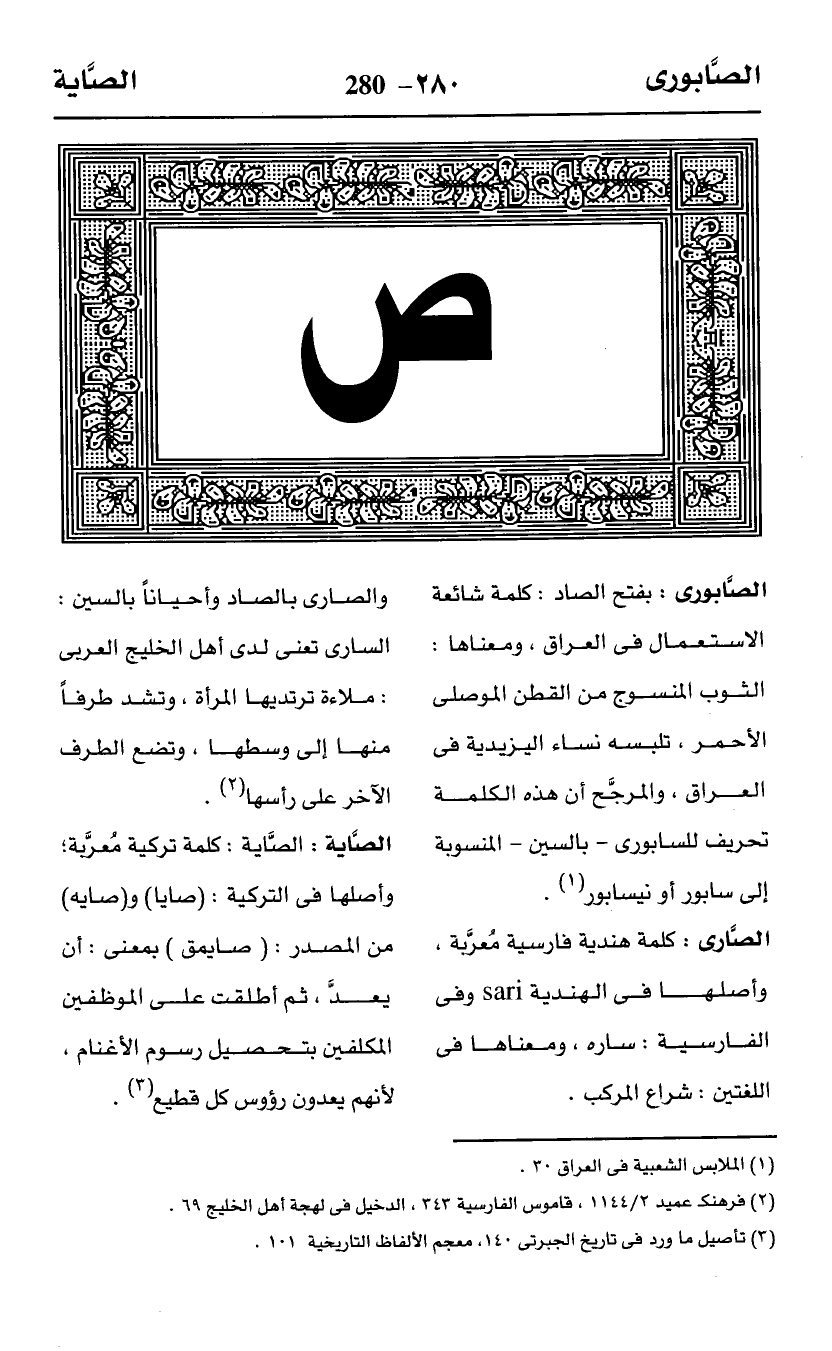 الصَّابورى
٢٨٠- 280
الصَّاية
ص
الصَّابورى : بفتح الصاد : كلمة شائعة
الاستعمال فى العراق ، ومعناها :
الثوب المنسوج من القطن الموصلى
الأحمر ، تلبسه نساء اليزيدية فى
العراق ، والمرجَّح أن هذه الكلمة
تحريف للسابورى - بالسين - المنسوبة
إلى سابور أو نيسابور(١) .
الصَّارى : كلمة هندية فارسية مُعرَّبة ،
وأصلها فى الهندية sari وفى
الفارسية : ساره ، ومعناها فى
اللغتين : شراع المركب .
والصارى بالصاد وأحياناً بالسين :
السارى تعنى لدى أهل الخليج العربى
: ملاءة ترتديها المرأة ، وتشد طرفاً
منها إلى وسطها ، وتضع الطرف
الآخر على رأسها(٢) .
الصَّاية : الصَّاية : كلمة تركية مُعرَّبة؛
وأصلها فى التركية : (صايا) و(صايه)
من المصدر : ( صايمق ) بمعنى : أن
يعدَّ ، ثم أطلقت على الموظفين
المكلفين بتحصيل رسوم الأغنام ،
لأنهم يعدون رؤوس كل قطيع(٣) .
(١) الملابس الشعبية فى العراق ٣٠ .
(٢) فرهنك عميد ١١٤٤/٢ ، قاموس الفارسية ٣٤٣ ، الدخيل فى لهجة أهل الخليج ٦٩ .
(٣) تأصيل ما ورد فى تاريخ الجبرتى ١٤٠، معجم الألفاظ التاريخية ١٠١ .